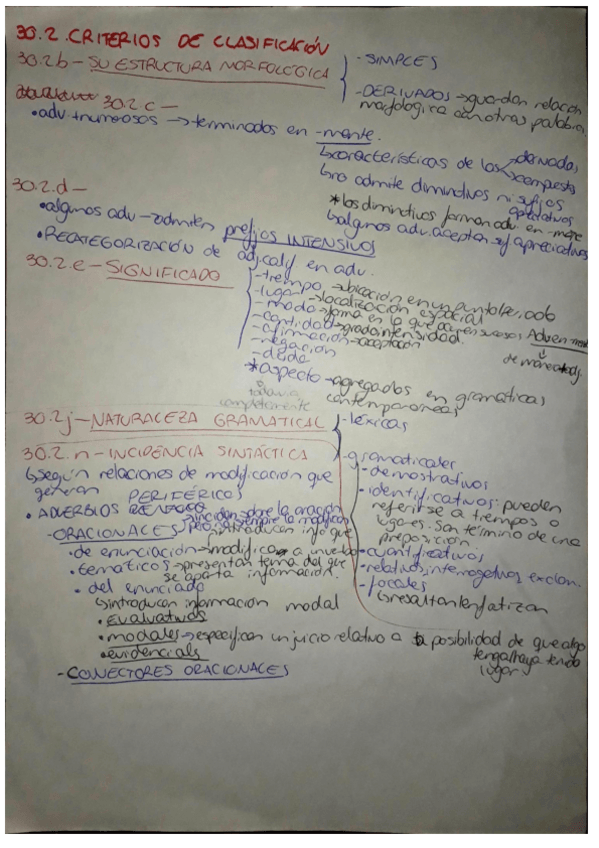 30.2. CRITERIOS DE CLASIFICACIÓN
30.2.b - SU ESTRUCTURA MORFOLÓGICA
- SIMPLES
- DERIVADOS → guardan relación
morfológica con otras palabra
30.2.c -
• adv. numerosos → terminados en -mente.
↳ características de los → derivados
→ compuestos
↳ no admite diminutivos ni sufijos
apreciativos
* los diminutivos forman adv. en -mente
↳ algunos adv. aceptan suf. apreciativos
30.2.d -
• algunos adv → admiten prefijos INTENSIVOS
• RECATEGORIZACIÓN de adj. calif en adv.
30.2.e - SIGNIFICADO
- tiempo → ubicación en un punto
- lugar → localización espacial
- modo → forma en la que ocurren sucesos
- cantidad → grado, intensidad.
- afirmación → aceptación
- negación
- duda
* aspecto → agregados en gramáticas
contemporáneas
de manera + adj.
todavía
completamente
30.2.j - NATURALEZA GRAMATICAL
- léxicas
- gramaticales
- demostrativos
- identificativos: pueden
referirse a tiempos o
lugares. Son término de una
preposición
- cuantificativos
- relativos, interrogativos, exclam.
- focales
↳ resaltan/enfatizan
30.2.n - INCIDENCIA SINTÁCTICA
↳ según relaciones de modificación que
generan
• ADVERBIOS PERIFÉRICOS
→ inciden sobre la oración
- ORACIONALES → introducen info que
• de enunciación → modifica a un verbo
• temáticos → presentan tema del que
se aporta información.
• del enunciado
↳ introducen información modal
• evaluativos
• modales → especifican un juicio relativo a la posibilidad de que algo
tenga/haya tenido
lugar
• evidencials
- CONECTORES ORACIONALES